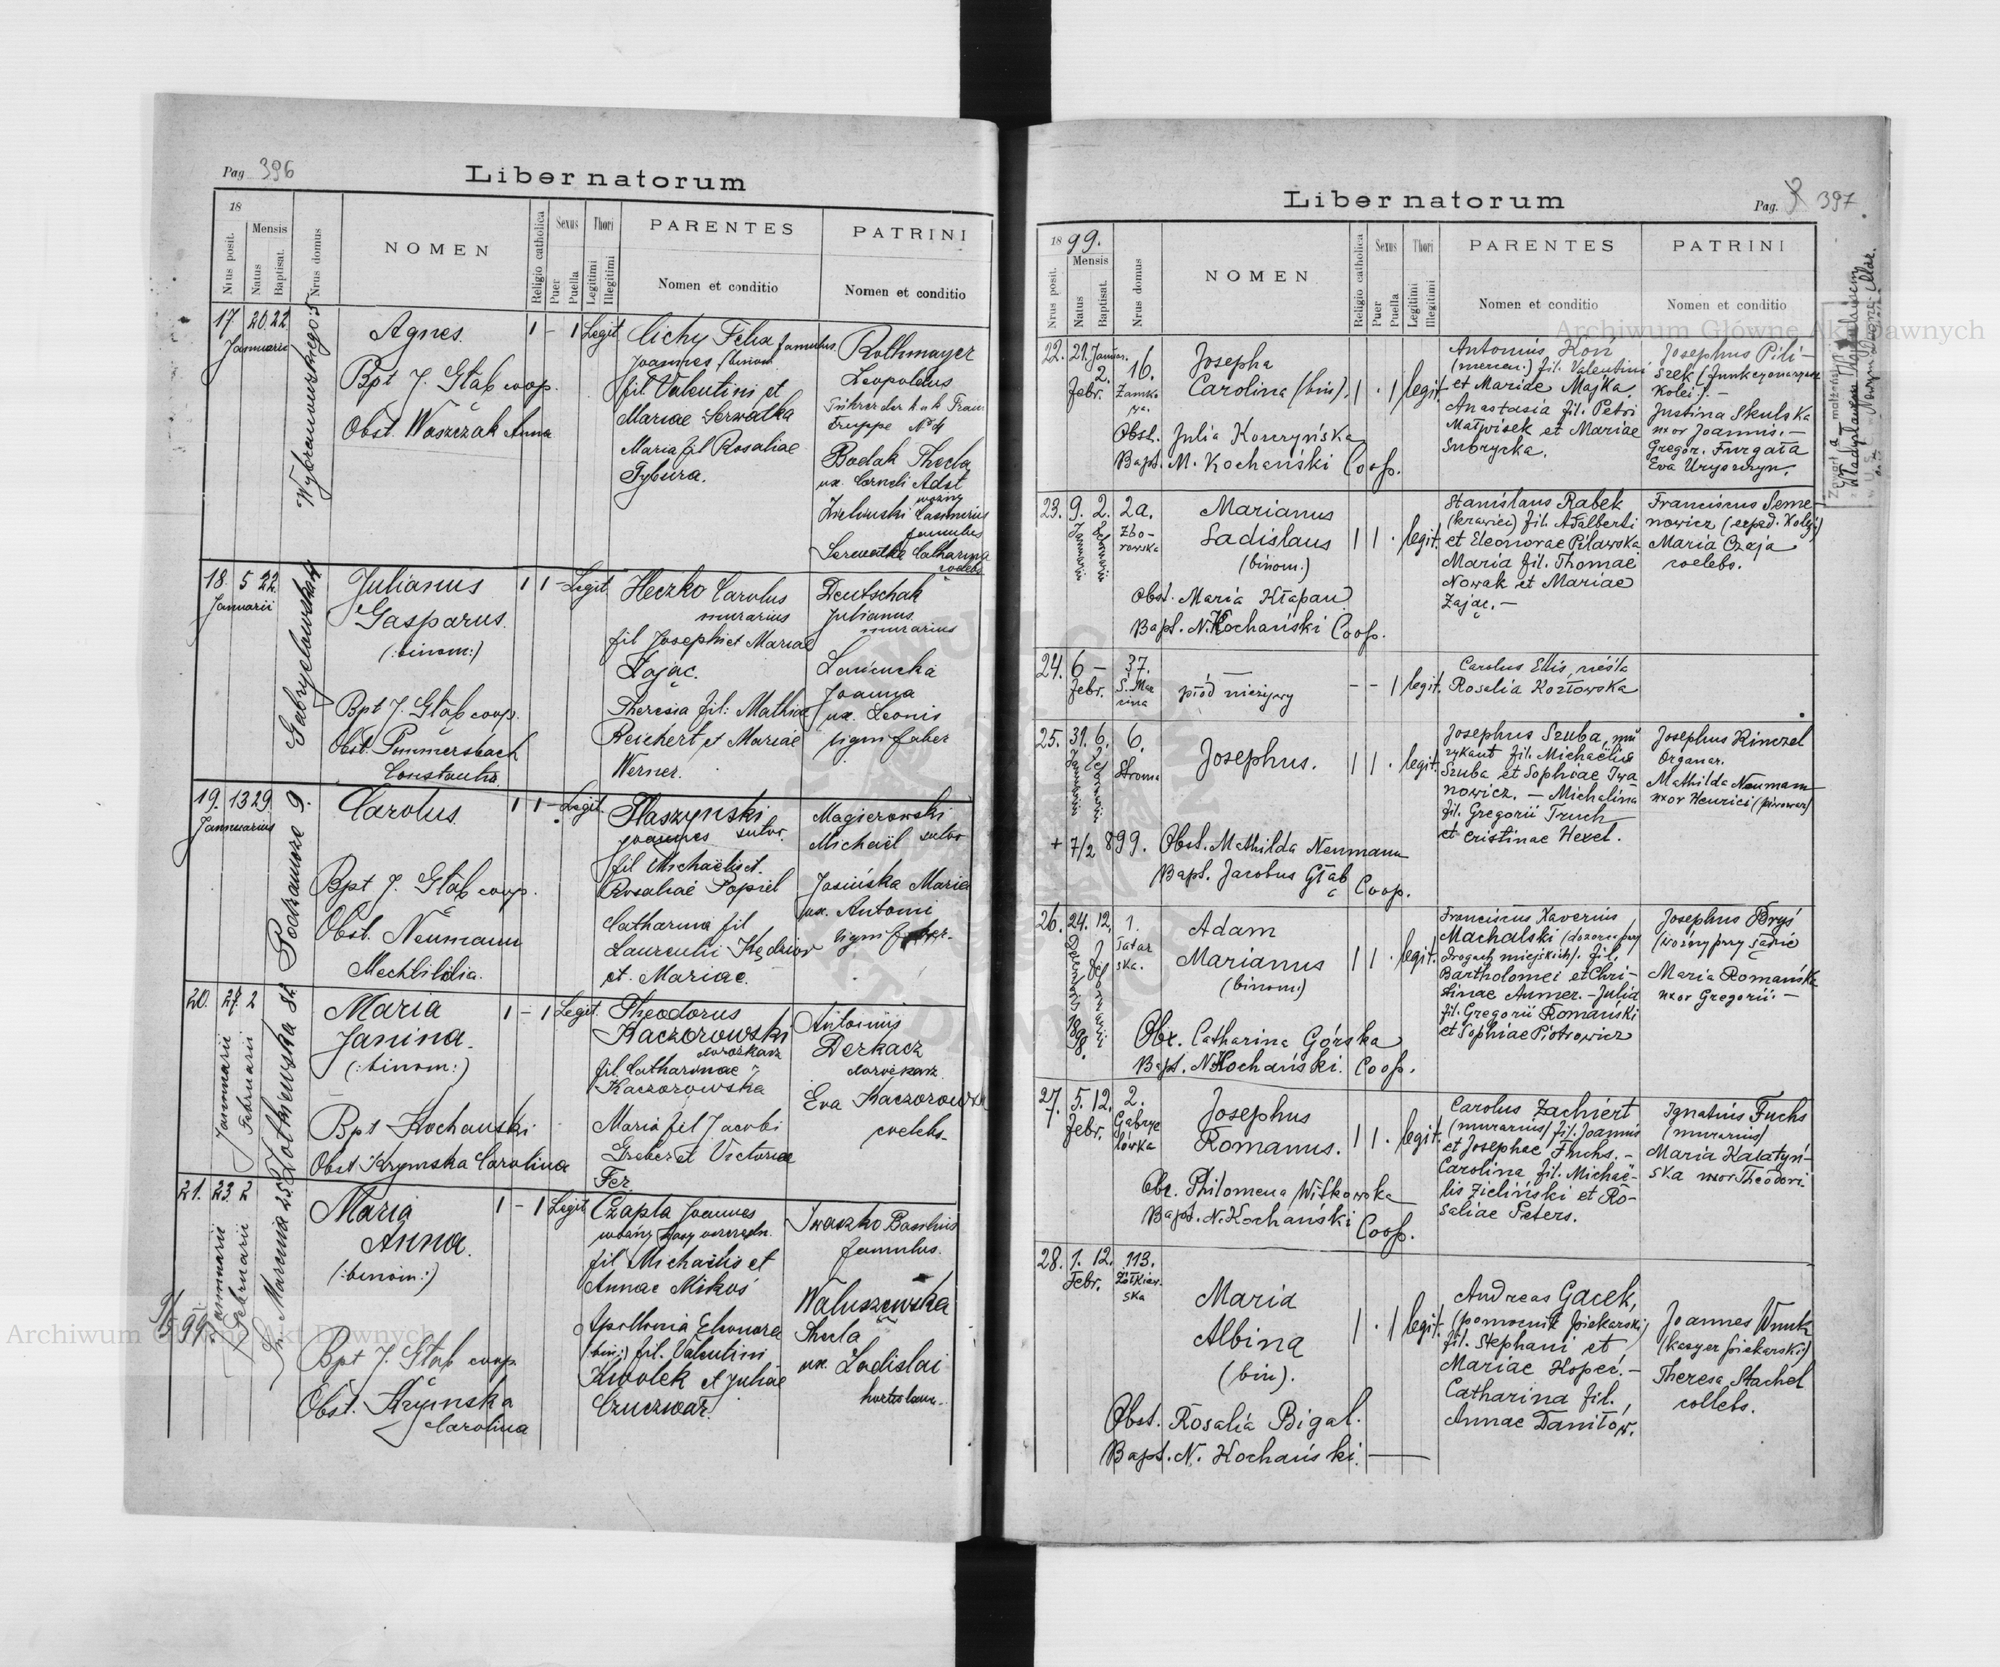 Pag 396
Liber natorum
18
Nrus posit.
Mensis
Natus
Baptisat.
Nrus domus
NOMEN
Religio catholica
Sexus
Puer
Puella
Thori
Legitimi
Illegitimi
PARENTES
Nomen et conditio
PATRINI
Nomen et conditio
17 20 22
Januarii
Agnes.
1 - 1 Legit
Cichy Felix famulus
Joannes (binom
fil Valentini et
Mariae Serwatka
Maria fil Rosaliae
Rothmayer
Leopoldus
Bodak Thecla
ux. Corneli Adst
famulus
Serwatka Catharina
coelebs
Bpt J. Głąb coop.
Obst. Waszczak Anna
18. 5 22
Januarii
Julianus
Gasparus.
(:binom:)
1 1 - Legit
Heczko Carolus
murarius
fil Josephi et Mariae
Zając.
Theresia fil: Mathiae
Reichert et Mariae
Werner.
Deutschak
Julianus
murarius
Joanna
ux. Leonis
lignifaber
Bpt J. Głąb coop.
Obst. Pommersbach
Constantia
19. 13 29
Januarius
Podzamcze 9.
Carolus
1 1 - Legit
Staszynski
Joannes sutor
fil Michaelis et
Rosaliae Popiel
Catharina fil
Laurentii Kędzior
et Mariae.
Magierowski
Michael sutor
Jasińska Maria
ux. Antoni
lignifaber
Bpt J. Głąb coop.
Obst. Neumann
Mechtildia.
20. 27 2
Januarii
Februarii
Maria
Janina.
(:binom:)
1 - 1 Legit
Theodorus
Kaczorowski
dorożkarz
fil Catharinae
Kaczorowska
Maria fil Jacobi
Greber et Victoriae
Fez
Antonius
Derkacz
dorożkarz
Eva Kaczorowska
coelebs
Bpt Kochański
Obst Krymska Carolina
21. 23 2
Januarii
Februarii
Maria
Anna.
(:binom:)
1 - 1 Legit
Czapla Joannes
fil Michaelis et
Annae Mikoś
Apollonia Eleonora
(bin:) fil. Valentini
Kwolek et Juliae
Czuczwar.
Iwaszko Basilius
famulus.
Waluszewska
Thecla
ux. Ladislai
Bpt J. Głąb coop
Obst. Krymska
Carolina
Liber natorum
Pag. 397
1899.
Nrus posit.
Mensis
Natus
Baptisat.
Nrus domus
NOMEN
Religio catholica
Sexus
Puer
Puella
Thori
Legitimi
Illegitimi
PARENTES
Nomen et conditio
PATRINI
Nomen et conditio
22. 21. Januar. 2. Febr. 16.
Josepha
Carolina (bin).
1 . 1 legit.
Antonius Koń
(mercen.) fil. Valentini
et Mariae Majka.
Anastasia fil. Petri
Małwisek et Mariae
Subrycka.
Josephus Pili-
szek (funkcyonaryusz
kolei). -
Justina Skulska
uxor Joannis. -
Gregor. Furgała
Eva Uryszczyn.
Obst. Julia Korczyńska
Bapt. M. Kochański Coop.
23. 9. 2. 2a.
Januarii
Februarii
Zbo-
rowska
Marianus
Ladislaus
(binom.)
1 1 . legit.
Stanislaus Rabek
(krawiec) fil. Adalberti
et Eleonorae Pilawska
Maria fil. Thomae
Nowak et Mariae
Zając. -
Franciscus Seme-
nowicz (exped. Kolej)
Maria Czaja
coelebs.
Obst. Maria Kłapau
Bapt. N. Kochański Coop.
24. 6 - 37.
Febr.
płód nieżywy
- - 1 legit.
Carolus Ellis, cieśla
Rosalia Kozłowska
25. 31. 6. 6.
Januarii
Februarii
Stroma
Josephus.
1 1 . legit.
Josephus Szuba, mu
zykant fil. Michaëlis
Szuba et Sophiae Iwa
nowicz. - Michalina
fil. Gregorii Truch
et Cristinae Hexel.
Josephus Kinczel
Organar.
Mathilda Neumann
uxor Henrici (piwowar)
+ 7/2 899.
Obst. Mathilda Neumann
Bapt. Jacobus Głąb Coop.
26. 24. 12. 1.
Decembris 1898.
Februarii
Tatar
ska.
Adam
Marianus
(binom.)
1 1 . legit.
Franciscus Xaverius
Machalski (dozorca przy
drogach miejskich). fil.
Bartholomei et Chri-
stinae Anmer. - Julia
fil. Gregorii Romański
et Sophiae Piotrowicz
Josephus Bryś
(woźny przy sądzie
Maria Romańska
uxor Gregorii. -
Obst. Catharina Górska
Bapt. N. Kochański. Coop.
27. 5. 12. 2.
Febr.
Gabrye
lówka
Josephus
Romanus.
1 1 . legit.
Carolus Zachiert
(murarius) fil. Joannis
et Josephae Fuchs. -
Carolina fil. Michaë-
lis Zieliński et Ro-
saliae Peters.
Ignatius Fuchs
(murarius)
Maria Kałatyń-
ska uxor Theodori.
Obst. Philomena Witkowska
Bapt. N. Kochański Coop.
28. 1. 12. 113.
Febr.
Żółkiew
ska
Maria
Albina
(bin).
1 . 1 legit.
Andreas Gacek,
(pomocnik piekarski)
fil. Stephani et
Mariae Kopeć. -
Catharina fil.
Annae Daniłów.
Joannes Wnuk
(kasyer piekarski)
Theresa Stachel
coelebs.
Obst. Rosalia Bigal.
Bapt. N. Kochański.
Archiwum Główne Akt Dawnych
Archiwum Główne Akt Dawnych